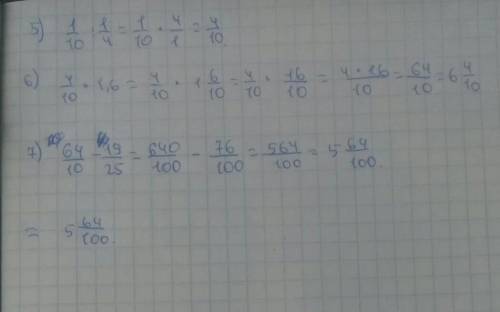 5) 1/10 : 1/4 = 1/10 * 4/1 = 4/10.
6) 4/10 * 1,6 = 4/10 * 1 6/10 = 4/10 * 16/10 = 4*16/10 = 64/10 = 6 4/10
7) 64/10 - 19/25 = 640/100 - 76/100 = 564/100 = 5 64/100.
= 5 64/100.